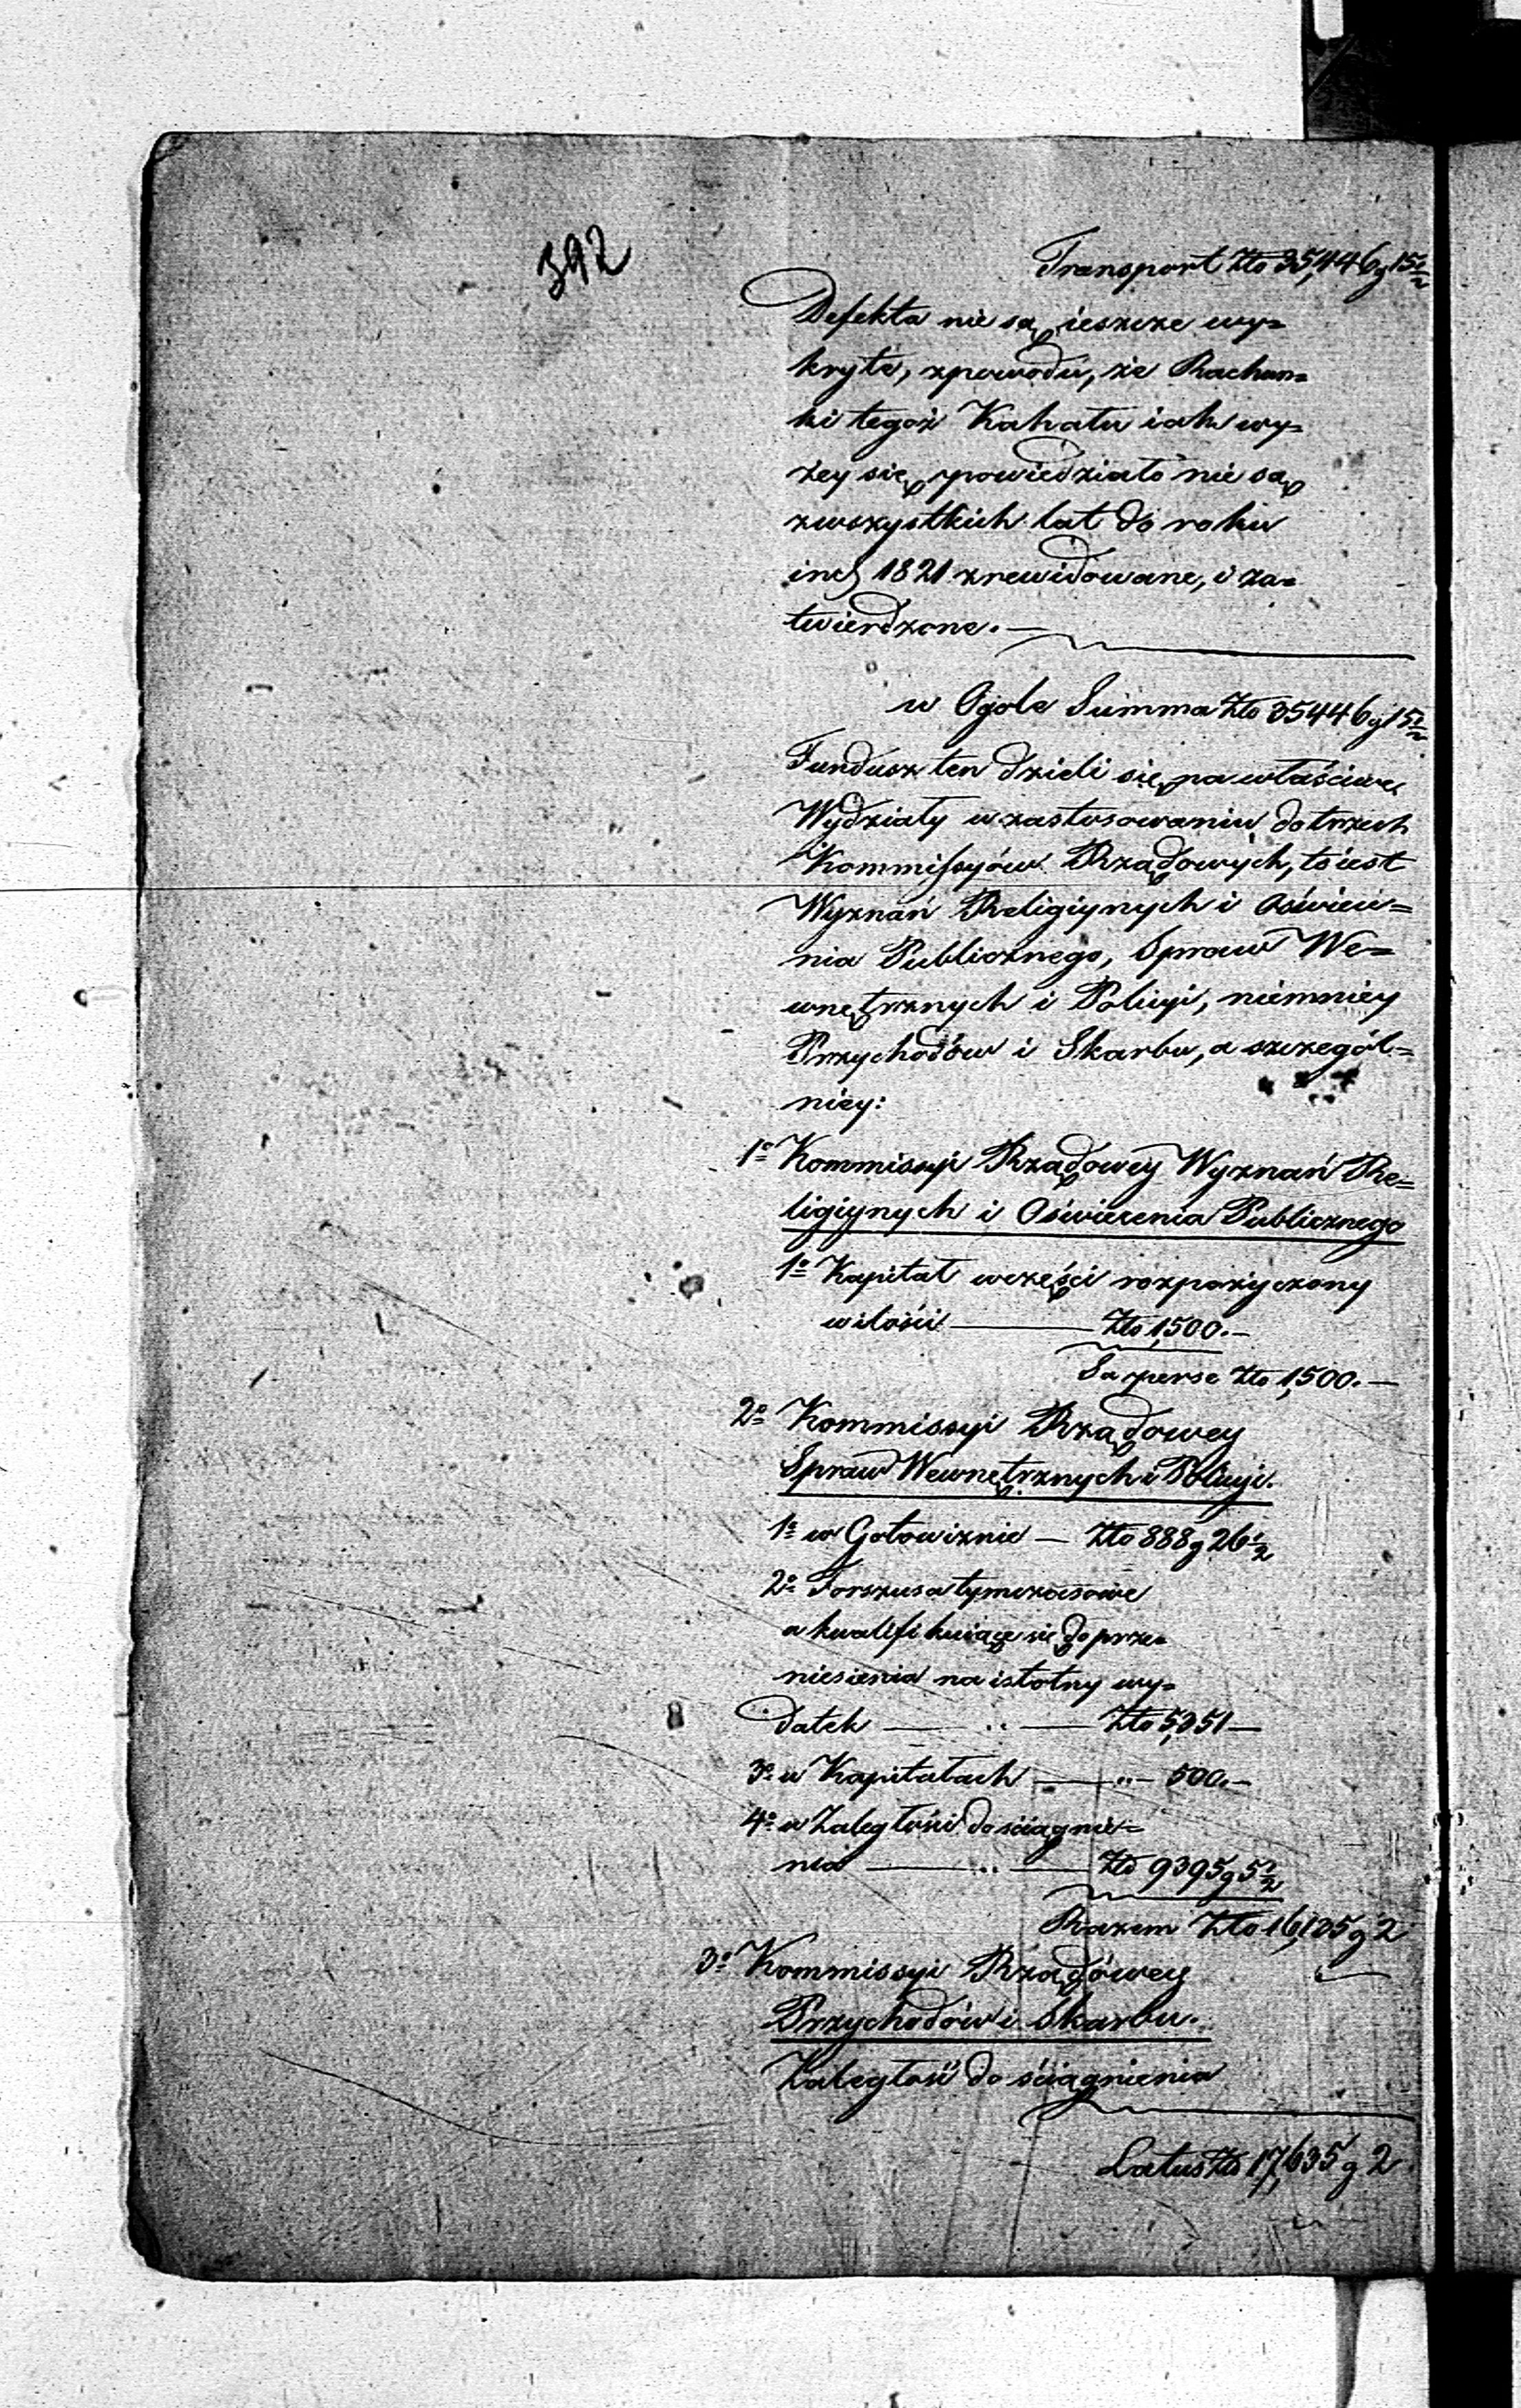 392
Transport Zło 35,446 g 15 1/2
Defekta nie są ieszcze wy=
kryte, zpowodu, że Rachun=
ki tegoż Kahału iak wy=
żey się powiedziało nie są
zwszystkich lat do roku
incl 1821 zrewidowane, i za=
twierdzone. —
w Ogole Summa Zło 35446 g 15 1/2
Fundusz ten dzieli się na właściwe
Wydziały w zastosowaniu do trzech
Kommissyów Rządowych, to iest
Wyznań Religiynych i Oświece=
nia Publicznego, Spraw We=
wnętrznych i Policyi, niemniey
Przychodów i Skarbu, a szczegól=
niey:
1o Kommissyi Rządowey Wyznań Re=
ligiynych i Oświecenia Publicznego
1o Kapitał wczęści rozpożyczony
w ilości — Zło 1,500. —
Sa perse Zło 1,500. —
2o Kommissyi Rządowey
Spraw Wewnętrznych i Policyi.
1o w Gotowiznie — Zło 888 g 26 1/2
2o Forszusa tymczasowe
a kwalifikuiące się do prze=
niesienia na istotny wy=
datek — „ — Zło 5,351 —
3o w Kapitałach — „ — 500. —
4o w Zaległości do ściągnie=
nia — „ — Zło 9395 g 5 1/2
Razem Zło 16,135 g 2
3o Kommissyi Rządowey
Przychodów i Skarbu.
Zaległość do ściągnienia
Latus Zło 17,635 g 2